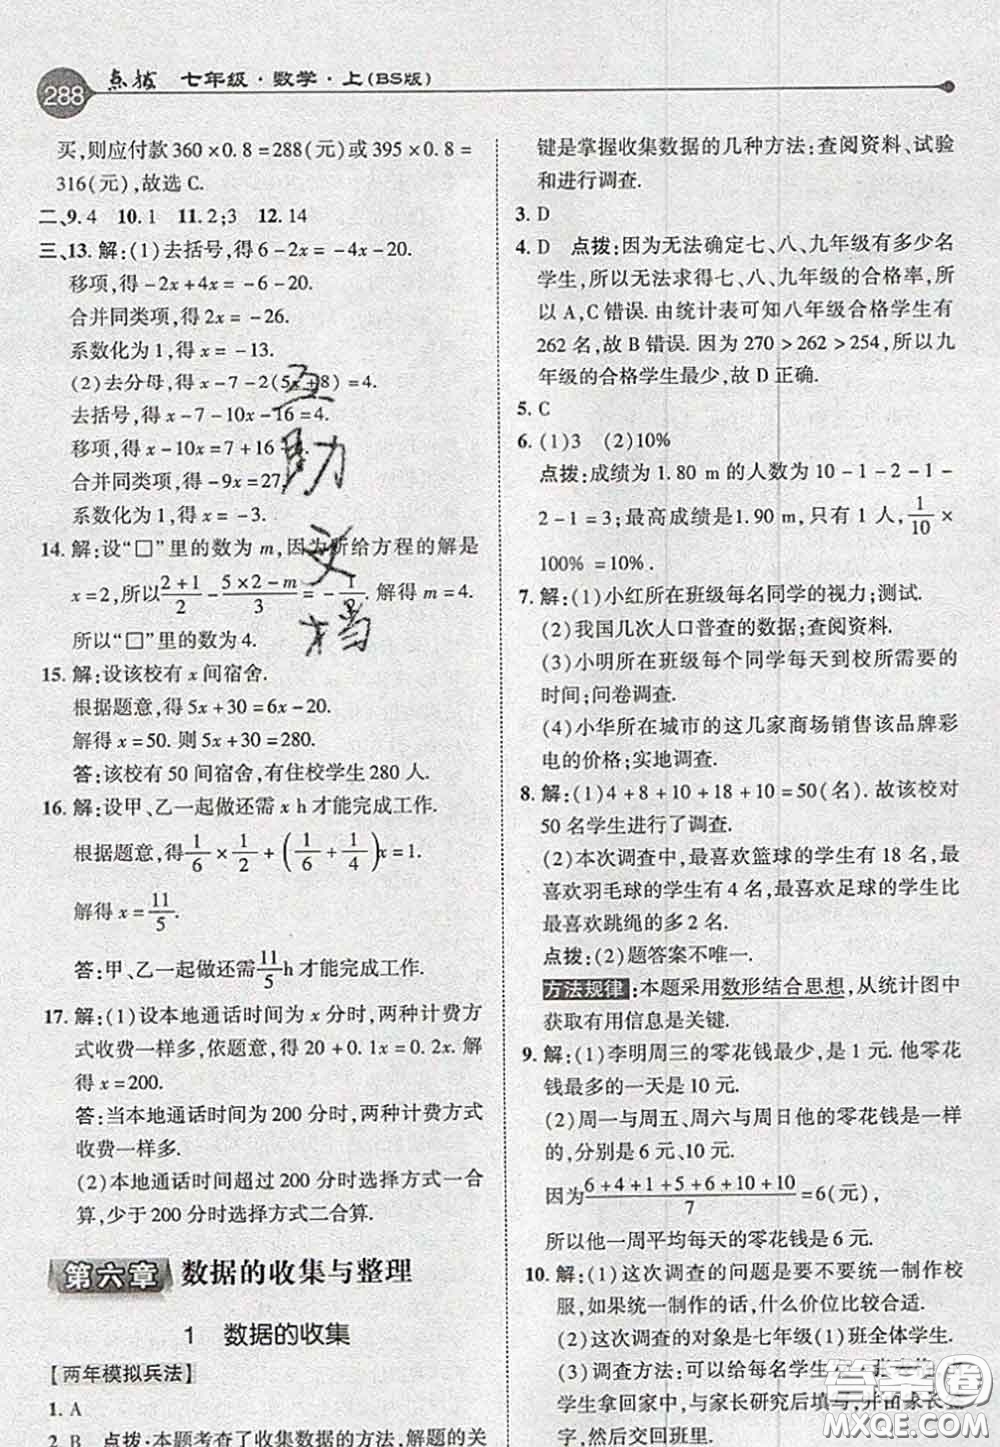 288 点拨 七年级·数学·上(BS版)
买,则应付款360×0.8=288(元)或395×0.8=
316(元),故选C.
二、9.4 10.1 11.2;3 12.14
三、13.解:(1)去括号,得6-2x=-4x-20.
移项,得-2x+4x=-6-20.
合并同类项,得2x=-26.
系数化为1,得x=-13.
(2)去分母,得x-7-2(5x+8)=4.
去括号,得x-7-10x-16=4.
移项,得x-10x=7+16+4.
合并同类项,得-9x=27.
系数化为1,得x=-3.
14.解:设“□”里的数为m,因为所给方程的解是
x=2,所以(2+1)/2-(5×2-m)/3=-1/2.解得m=4.
所以“□”里的数为4.
15.解:设该校有x间宿舍.
根据题意,得5x+30=6x-20.
解得x=50.则5x+30=280.
答:该校有50间宿舍,有住校学生280人.
16.解:设甲、乙一起做还需x h才能完成工作.
根据题意,得1/6×1/2+(1/6+1/4)x=1.
解得x=11/5.
答:甲、乙一起做还需11/5 h才能完成工作.
17.解:(1)设本地通话时间为x分时,两种计费方
式收费一样多,依题意,得20+0.1x=0.2x.解
得x=200.
答:当本地通话时间为200分时,两种计费方式
收费一样多.
(2)本地通话时间超过200分时选择方式一合
算,少于200分时选择方式二合算.
第六章 数据的收集与整理
1 数据的收集
[两年模拟兵法]
1.A
2.B 点拨:本题考查了收集数据的方法,解题的关
键是掌握收集数据的几种方法:查阅资料、试验
和进行调查.
3.D
4.D 点拨:因为无法确定七、八、九年级有多少名
学生,所以无法求得七、八、九年级的合格率,所
以A,C错误.由统计表可知八年级合格学生有
262名,故B错误.因为270>262>254,所以九
年级的合格学生最少,故D正确.
5.C
6.(1)3 (2)10%
点拨:成绩为1.80 m的人数为10-1-2-1-
2-1=3;最高成绩是1.90 m,只有1人,1/10×
100%=10%.
7.解:(1)小红所在班级每名同学的视力;测试.
(2)我国几次人口普查的数据;查阅资料.
(3)小明所在班级每个同学每天到校所需要的
时间;问卷调查.
(4)小华所在城市的这几家商场销售该品牌彩
电的价格;实地调查.
8.解:(1)4+8+10+18+10=50(名).故该校对
50名学生进行了调查.
(2)本次调查中,最喜欢篮球的学生有18名,最
喜欢羽毛球的学生有4名,最喜欢足球的学生比
最喜欢跳绳的多2名.
点拨:(2)题答案不唯一.
方法规律:本题采用数形结合思想,从统计图中
获取有用信息是关键.
9.解:(1)李明周三的零花钱最少,是1元.他零花
钱最多的一天是10元.
(2)周一与周五、周六与周日他的零花钱是一样
的,分别是6元、10元.
因为(6+4+1+5+6+10+10)/7=6(元),
所以他一周平均每天的零花钱是6元.
10.解:(1)这次调查的问题是要不要统一制作校
服,如果统一制作的话,什么价位比较合适.
(2)这次调查的对象是七年级(1)班全体学生.
(3)调查方法:可以给每名学生
学生拿回家中,与家长研究后填写,并由家长签
字,然后交回班里.
互
助
文
档
答案圈
MXQE.COM